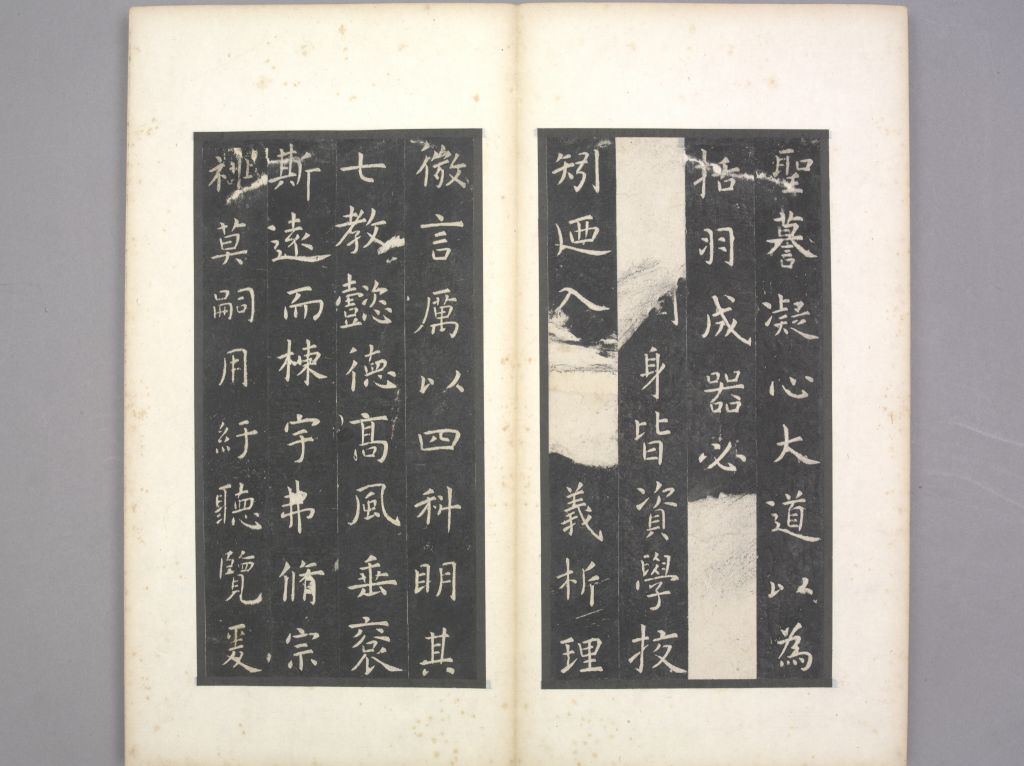 聖謩凝心大道以為
栝羽成器必
身皆資學挍
矧迺入義析理
微言厲以四科明其
七教懿德髙風垂裕
斯遠而棟宇弗脩宗
祧莫嗣用紆聽覽爰